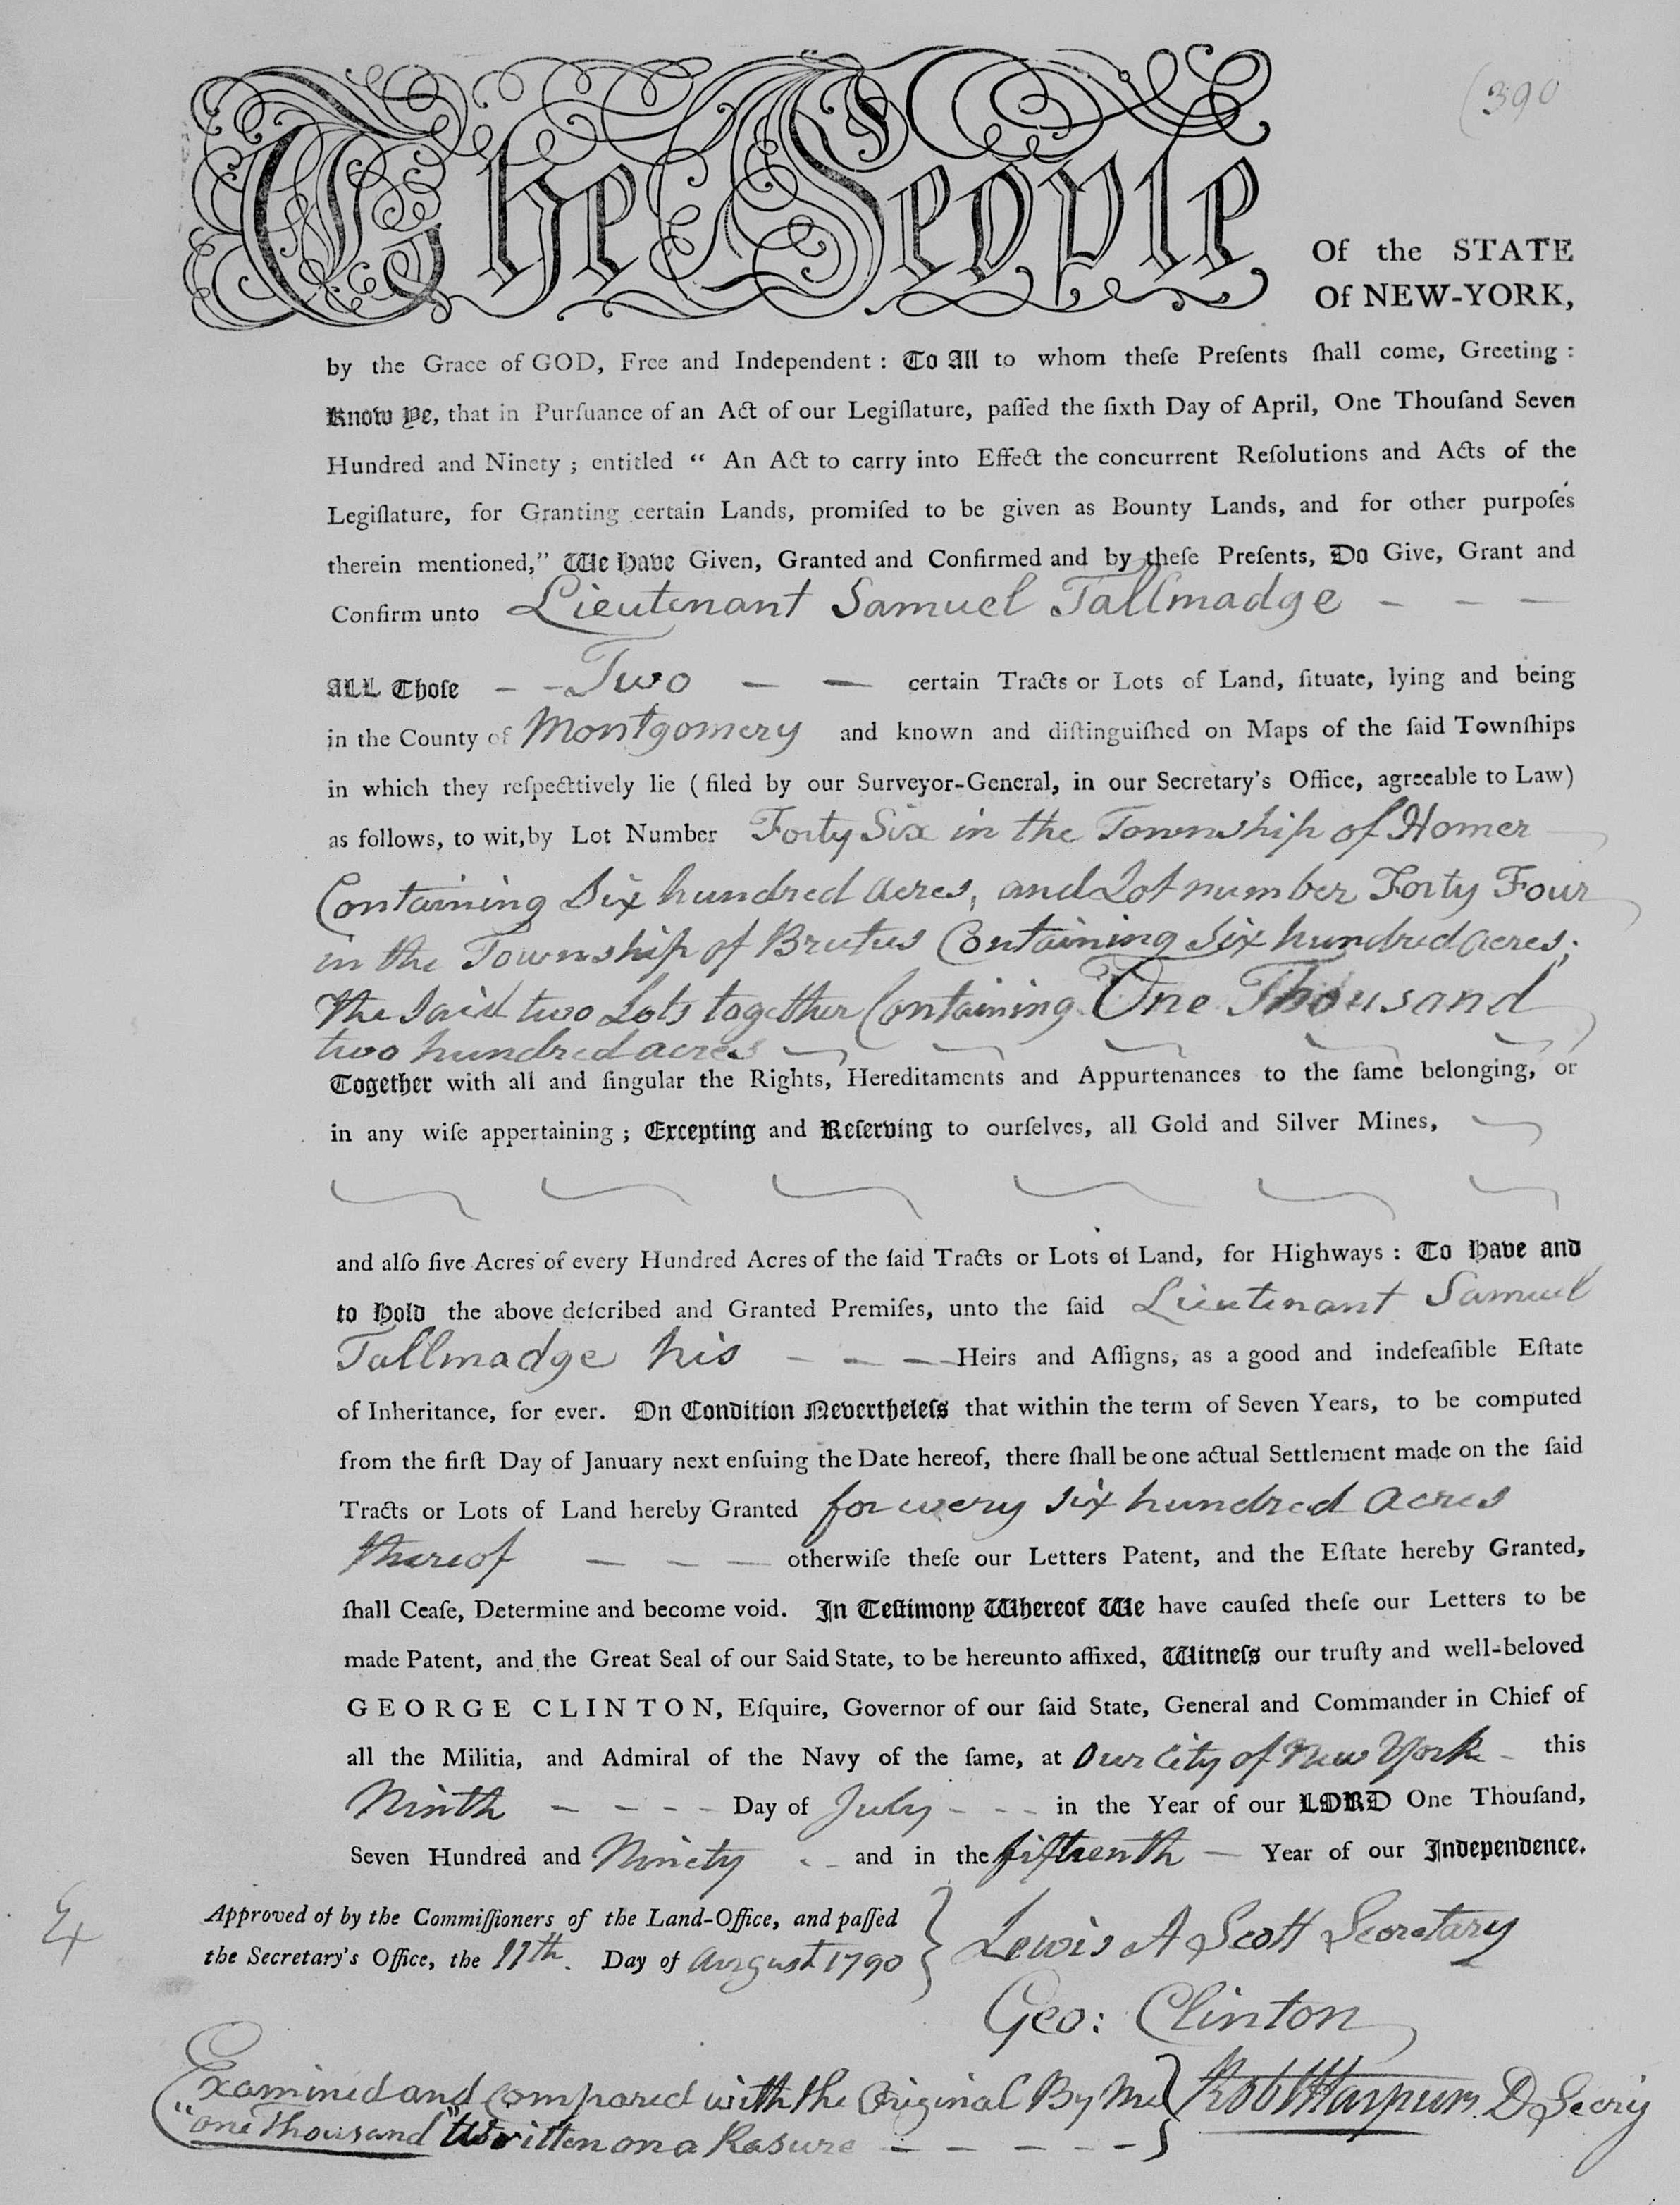 (390
The People
Of the STATE
Of NEW-YORK,
by the Grace of GOD, Free and Independent : To All to whom theſe Preſents ſhall come, Greeting :
Know Ye, that in Purſuance of an Act of our Legiſlature, paſſed the ſixth Day of April, One Thouſand Seven
Hundred and Ninety ; entitled “ An Act to carry into Effect the concurrent Reſolutions and Acts of the
Legiſlature, for Granting certain Lands, promiſed to be given as Bounty Lands, and for other purpoſes
therein mentioned,” We Have Given, Granted and Confirmed and by theſe Preſents, Do Give, Grant and
Confirm unto Lieutenant Samuel Tallmadge - - -
ALL Thoſe - - Two - - certain Tracts or Lots of Land, ſituate, lying and being
in the County of Montgomery and known and diſtinguiſhed on Maps of the ſaid Townſhips
in which they reſpecttively lie ( filed by our Surveyor-General, in our Secretary's Office, agreeable to Law)
as follows, to wit, by Lot Number Forty Six in the Township of Homer
Containing Six hundred acres, and Lot number Forty Four
in the Township of Brutus Containing Six hundred acres;
The Said two Lots together Containing One Thousand
two hundred acres
Together with all and ſingular the Rights, Hereditaments and Appurtenances to the ſame belonging, or
in any wiſe appertaining ; Excepting and Reſerving to ourſelves, all Gold and Silver Mines,
and alſo five Acres of every Hundred Acres of the ſaid Tracts or Lots of Land, for Highways : To Have and
to Hold the above deſcribed and Granted Premiſes, unto the ſaid Lieutenant Samuel
Tallmadge his - - - Heirs and Aſſigns, as a good and indefeaſible Eſtate
of Inheritance, for ever. On Condition Nevertheleſs that within the term of Seven Years, to be computed
from the firſt Day of January next enſuing the Date hereof, there ſhall be one actual Settlement made on the ſaid
Tracts or Lots of Land hereby Granted for every six hundred acres
thereof - - - otherwiſe theſe our Letters Patent, and the Eſtate hereby Granted,
ſhall Ceaſe, Determine and become void. In Teſtimony Whereof We have cauſed theſe our Letters to be
made Patent, and the Great Seal of our Said State, to be hereunto affixed, Witneſs our truſty and well-beloved
GEORGE CLINTON, Eſquire, Governor of our ſaid State, General and Commander in Chief of
all the Militia, and Admiral of the Navy of the ſame, at Our City of New York - this
Ninth - - - - Day of July - - - in the Year of our LORD One Thouſand,
Seven Hundred and Ninety - - and in the fifteenth - Year of our Independence.
Approved of by the Commiſſioners of the Land-Office, and paſſed
the Secretary's Office, the 11th. Day of August 1790
Lewis A Scott Secretary
Geo: Clinton
Examined and Compared with the Original By Me Robt Harpur. D Secry
"one Thousand" Written on a Rasure - - - - -